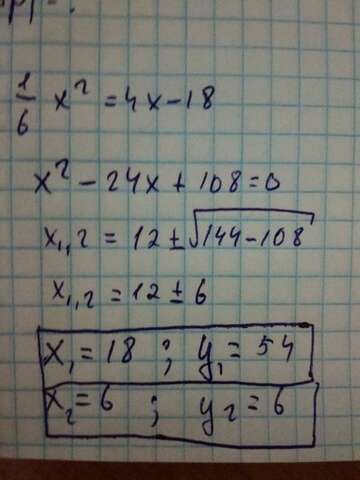 1/6 x² = 4x - 18
x² - 24x + 108 = 0
x₁,₂ = 12 ± √144 - 108
x₁,₂ = 12 ± 6
x₁ = 18 ; y₁ = 54
x₂ = 6 ; y₂ = 6